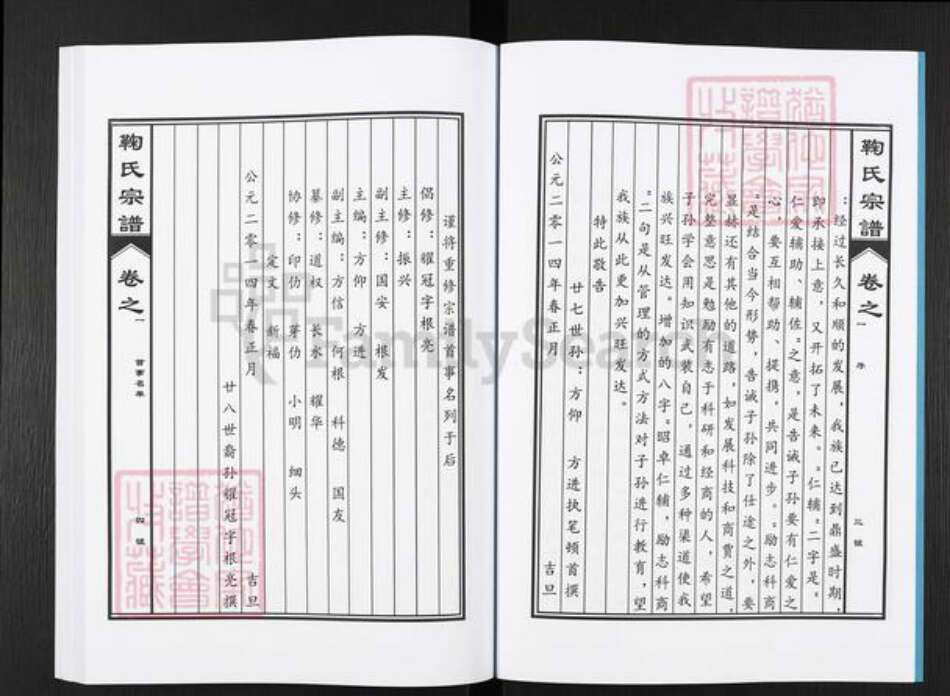 鞠氏宗譜
卷之一
序
三號
：经过长久和顺的发展，我族已达到鼎盛时期，
即承接上意，又开拓了未来。：仁辅：二字是：
仁爱辅助、辅佐：之意，是告诫子孙要有仁爱之
心，要互相帮助、提携，共同进步。：励志科商
：是结合当今形势，告诫子孙除了仕途之外，要
显赫还有其他的道路，如发展科技和商贾之道，
完整意思是勉励有志于科研和经商的人，希望
子孙学会用知识武装自己，通过多种渠道使我
族兴旺发达。增加的八字：昭卓仁辅，励志科商
：二句是从管理的方式方法对子孙进行教育，望
我族从此更加兴旺发达。
特此敬告
廿七世孙：方仰 方进执笔顿首撰
公元二零一四年春正月 吉旦
谨将重修宗谱首事名列于后
倡修：耀冠字根亮
主修：振兴
副主修：国安 根发
主编：方仰 方进
副主编：方信 何根 科德 国友
纂修：道权 长水 耀华
协修：印仂 芽仂 小明 细头
定文 新福
廿八世裔孙耀冠字根亮撰
公元二零一四年春正月 吉旦
鞠氏宗譜
卷之一
首事名单
四號
FamilySearch